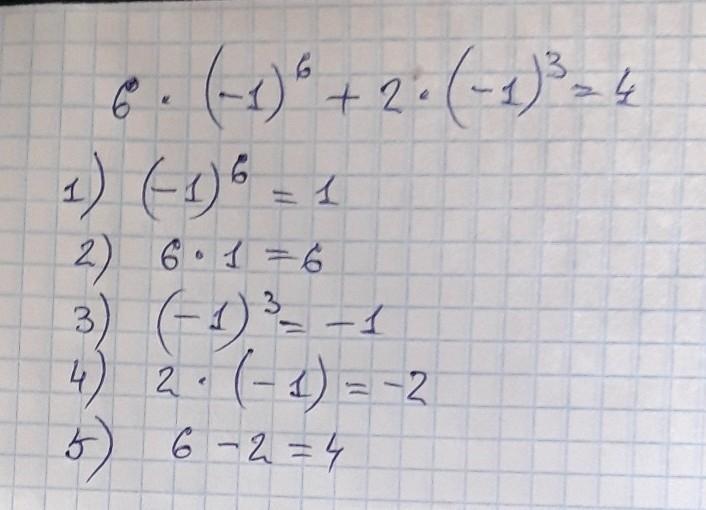 6 · (-1)⁶ + 2 · (-1)³ = 4
1) (-1)⁶ = 1
2) 6 · 1 = 6
3) (-1)³ = -1
4) 2 · (-1) = -2
5) 6 - 2 = 4